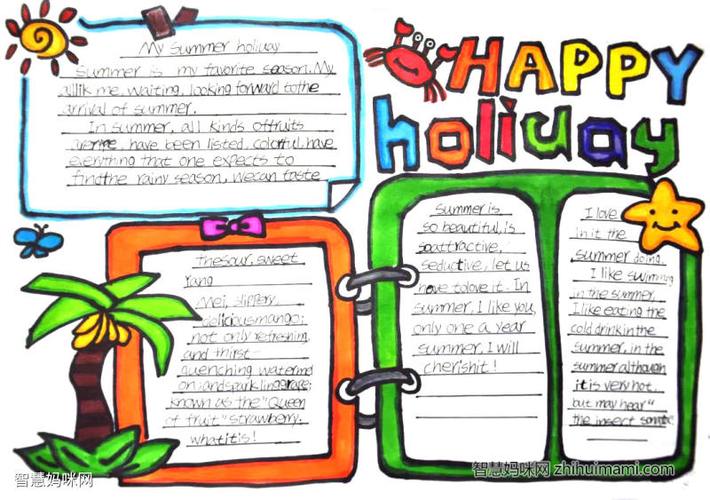 My summer holiday
summer is my favorite season. My
allik me, waiting, looking forward to the
arrival of summer.
In summer, all kinds of fruits
have been listed, colorful, have
everything that one expects to
find the rainy season, we can taste
HAPPY
holiday
the sour, sweet
rang
mei, slippery,
delicious mango;
not only refreshing,
and thirst-
quenching waterme
on; and sparkling grape;
known as the "Queen
of fruit" strawberry.
what it is!
summer is
so beautiful, is
so attractive,
seductive, let us
have to love it. In
summer, I like you,
only one a year
summer, I will
cherish it!
I love
in it the
summer doing.
I like swimming
in the summer,
I like eating the
cold drink in the
summer, in the
summer although
it is very hot,
but may hear"
the insect sonata
智慧妈咪网
智慧妈咪网 zhihuimami.com